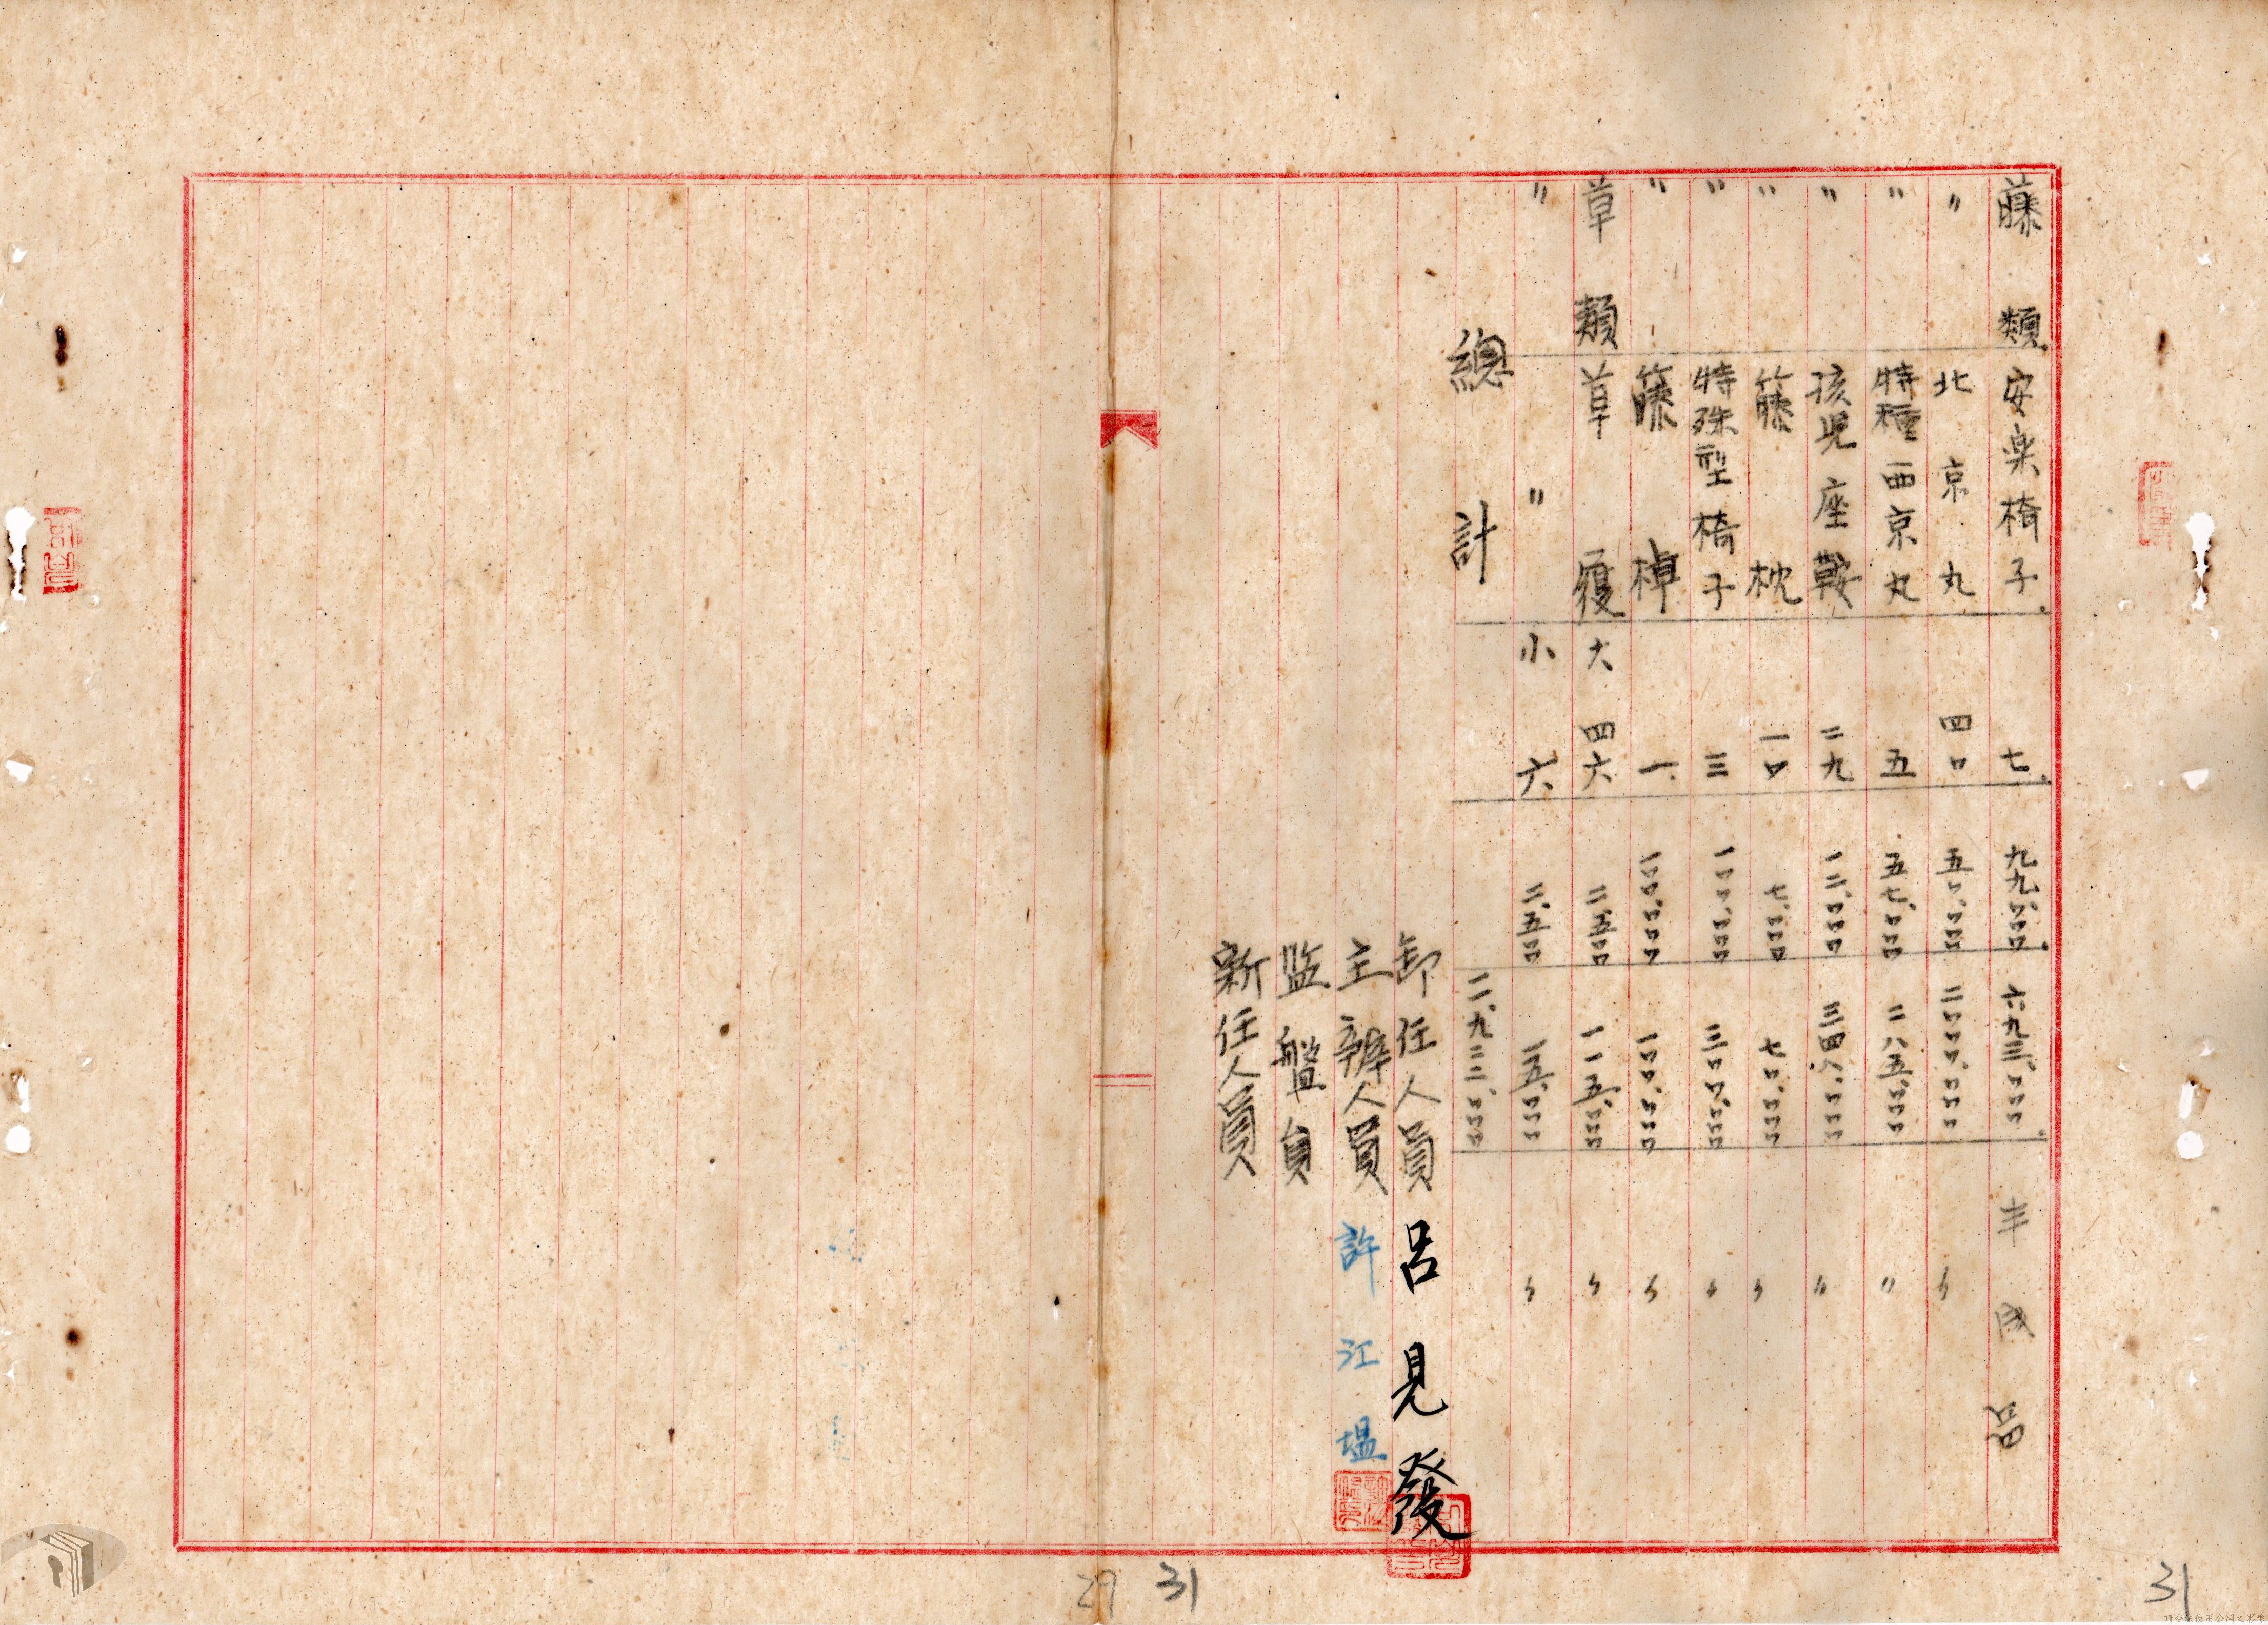 藤類 安楽椅子 七 九九.〇〇 六九三.〇〇〇 半成品
〃 北京丸 四〇 五〇.〇〇〇 二〇〇〇.〇〇〇 〃
〃 特種西京丸 五 五七.〇〇〇 二八五.〇〇〇 〃
〃 孩児座鞍 二九 一二.〇〇〇 三四八.〇〇〇 〃
〃 籐枕 一〇 七.〇〇〇 七〇.〇〇〇 〃
〃 特殊型椅子 三 一〇〇.〇〇〇 三〇〇.〇〇〇 〃
〃 籐棹 一 一〇〇.〇〇〇 一〇〇.〇〇〇 〃
草類 草履 大 四六 二.五〇〇 一一五.〇〇〇 〃
〃 〃 小 六 二.五〇〇 一五.〇〇〇 〃
總計
卸任人員 呂見發
主辦人員 許江塭
监盤員
新任人員
29 31
31